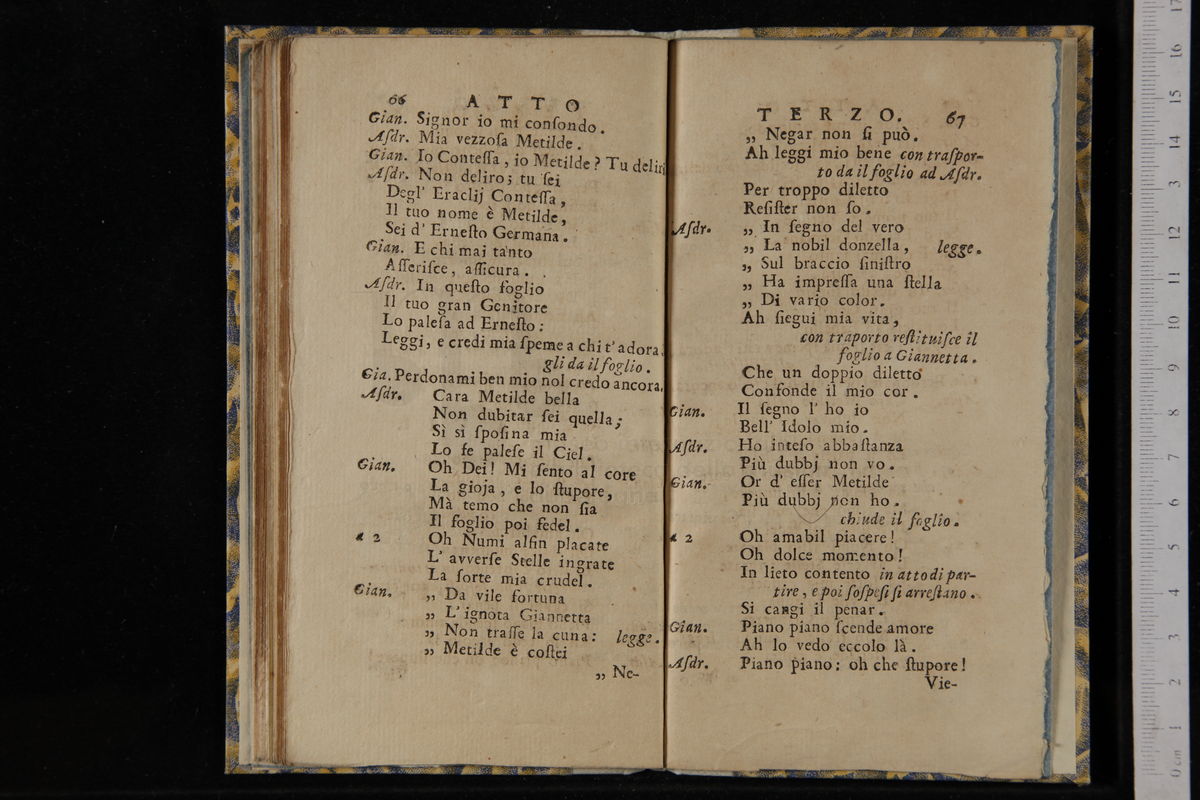 66 ATTO
Gian. Signor io mi confondo.
Aſdr. Mia vezzoſa Metilde.
Gian. Io Conteſſa, io Metilde? Tu deliri
Aſdr. Non deliro; tu ſei
Degl' Eraclij Conteſſa,
Il tuo nome è Metilde,
Sei d' Erneſto Germana.
Gian. E chi mai tanto
Aſſeriſce, aſſicura.
Aſdr. In queſto foglio
Il tuo gran Genitore
Lo paleſa ad Erneſto:
Leggi, e credi mia ſpeme a chi t' adora.
gli da il foglio.
Gia. Perdonami ben mio nol credo ancora.
Aſdr. Cara Metilde bella
Non dubitar ſei quella;
Sì sì ſpoſina mia
Lo fe paleſe il Ciel.
Gian. Oh Dei! Mi ſento al core
La gioja, e lo ſtupore,
Mà temo che non ſia
Il foglio poi fedel.
a 2 Oh Numi alfin placate
L' avverſe Stelle ingrate
La ſorte mia crudel.
Gian. „ Da vile fortuna
„ L' ignota Giannetta
„ Non traſſe la cuna: legge.
„ Metilde è coſtei
„ Ne-
TERZO. 67
„ Negar non ſi può.
Ah leggi mio bene con traſpor-
to da il foglio ad Aſdr.
Per troppo diletto
Reſiſter non ſo.
Aſdr. „ In ſegno del vero
„ La nobil donzella, legge.
„ Sul braccio ſiniſtro
„ Ha impreſſa una ſtella
„ Di vario color.
Ah ſiegui mia vita,
con traporto reſtituiſce il
foglio a Giannetta.
Che un doppio diletto
Confonde il mio cor.
Gian. Il ſegno l' ho io
Bell' Idolo mio.
Aſdr. Ho inteſo abbaſtanza
Più dubbj non vo.
Gian. Or d' eſſer Metilde
Più dubbj non ho.
chiude il foglio.
a 2 Oh amabil piacere!
Oh dolce momento!
In lieto contento in atto di par-
tire, e poi ſoſpeſi ſi arreſtano.
Si cangi il penar.
Gian. Piano piano ſcende amore
Ah lo vedo eccolo là.
Aſdr. Piano piano: oh che ſtupore!
Vie-
0 cm 1 2 3 4 5 6 7 8 9 10 11 12 13 14 15 16 17